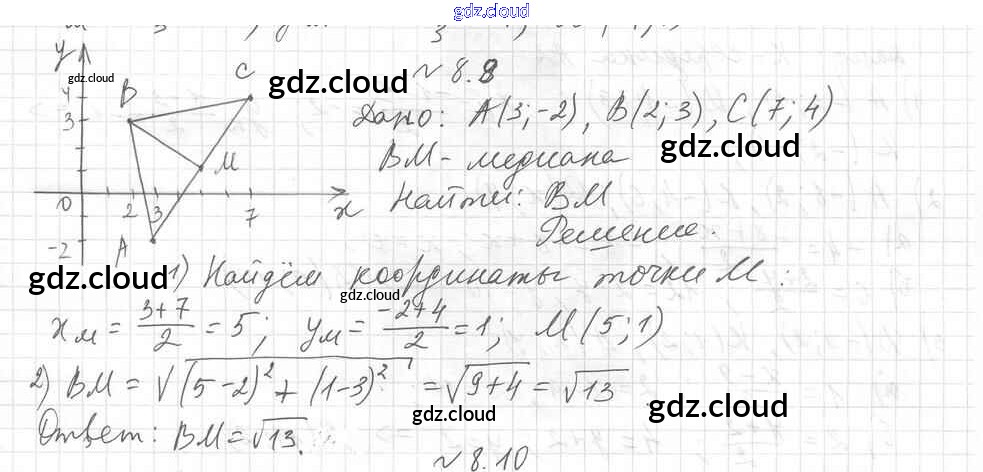 gdz.cloud
y
gdz.cloud
B
C
4
3
M
0
2
3
7
x
-2
A
№ 8.8
gdz.cloud
Дано: A(3;-2), B(2;3), C(7;4)
gdz.cloud
BM - медиана
Найти: BM
Решение.
gdz.cloud
1) Найдём координаты точки M:
gdz.cloud
x_M = \frac{3+7}{2} = 5; y_M = \frac{-2+4}{2} = 1; M(5;1)
2) BM = √((5-2)² + (1-3)²) = √(9+4) = √13
gdz.cloud
gdz.cloud
Ответ: BM = √13.
№ 8.10